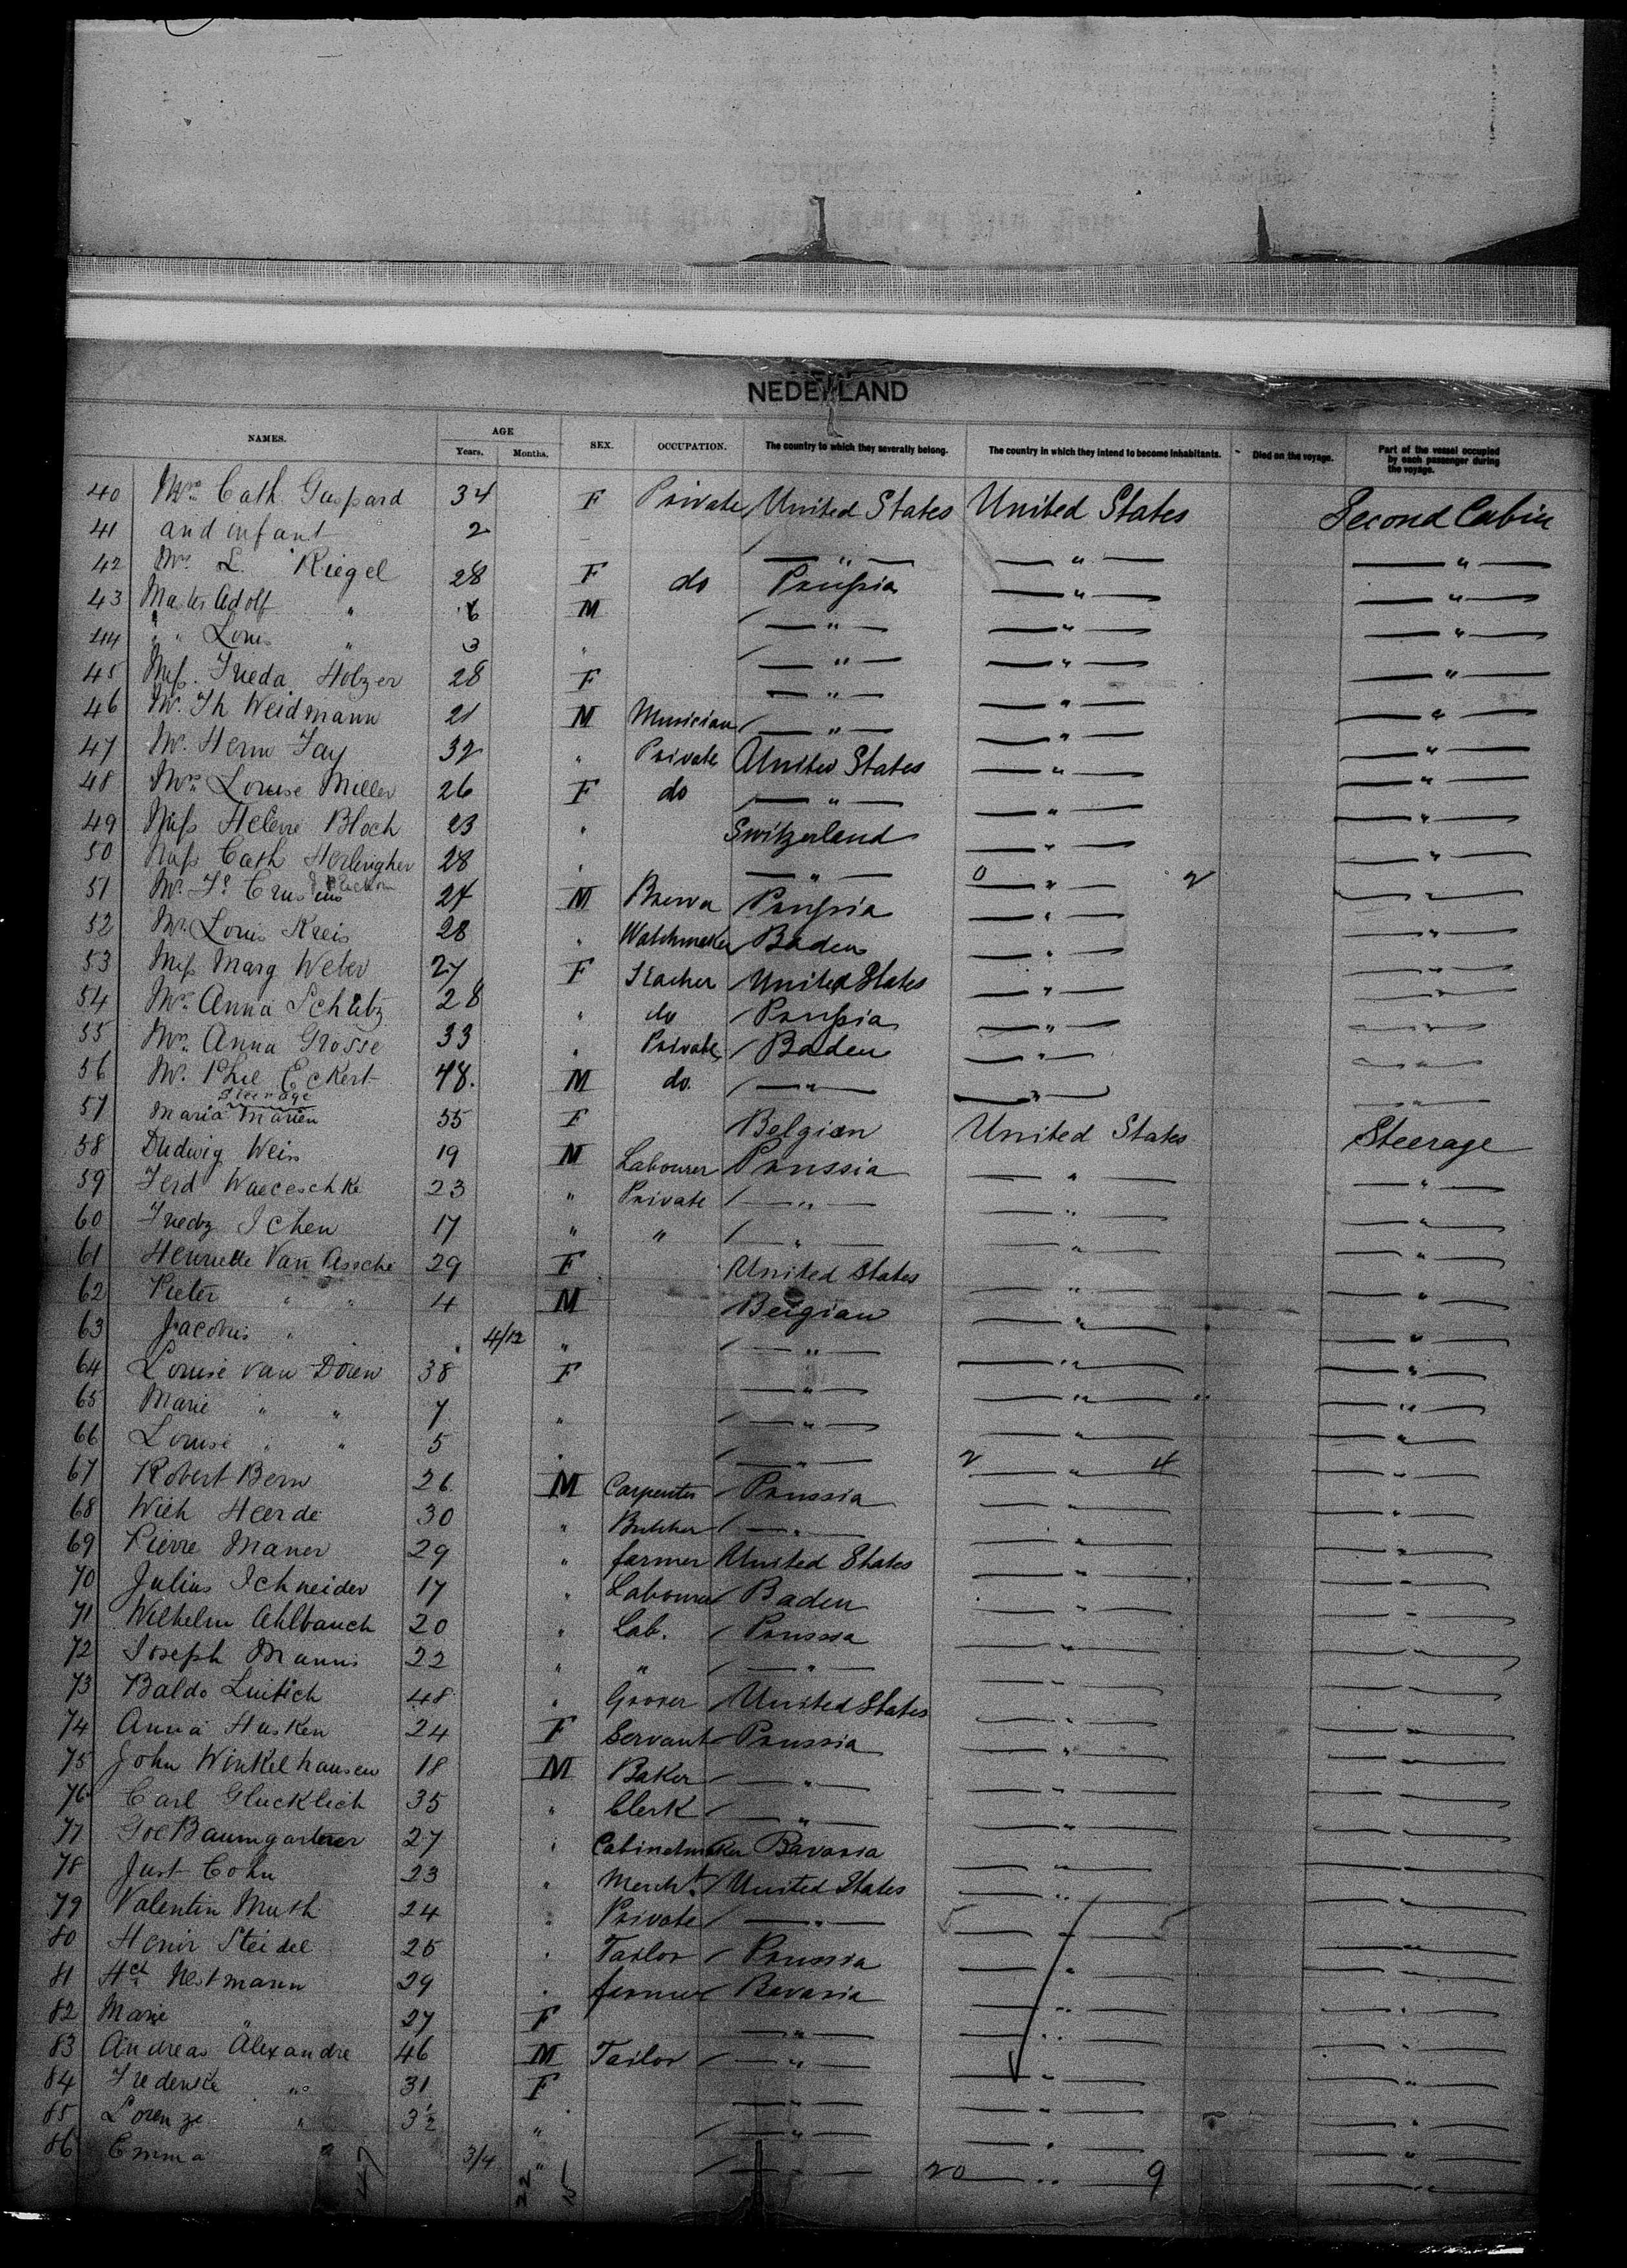 NEDERLAND
NAMES. AGE Years. Months. SEX. OCCUPATION. The country to which they severally belong. The country in which they intend to become inhabitants. Died on the voyage. Part of the vessel occupied by each passenger during the voyage.
40 Mrs. Cath. Gaspard 34 F Private United States United States Second Cabin
41 and infant 2 — " — — " — — " —
42 Mrs. L. Riegel 28 F do Prussia — " — — " —
43 Master Adolf " 6 M — " — — " — — " —
44 " " Louis " 3 " — " — — " — — " —
45 Miss. Frieda Holzer 28 F — " — — " — — " —
46 Mr. Th Weidmann 21 M Musician — " — — " — — " —
47 Mr. Herm Fay 32 " Private United States — " — — " —
48 Mrs. Louise Miller 26 F do — " — — " — — " —
49 Miss Helene Bloch 23 " Switzerland — " — — " —
50 Miss Cath 28 " — " — 0 — " — 2 — " —
51 Mr. Fs. Crusius 24 M Prussia — " — — " —
52 Mr. Louis Kreis 28 " Watchmaker Baden — " — — " —
53 Miss Marg Weber 27 F Teacher United States — " — — " —
54 Mrs. Anna Schatz 28 " do Prussia — " — — " —
55 Mrs. Anna Grosse 33 " Private Baden — " — — " —
56 Mr. Phil Eckert 48. M do. — " — — " — — " —
Steerage
57 Maria Marien 55 F Belgian United States Steerage
58 Ludwig Weis 19 M Labourer Prussia — " — — " —
59 Ferd Waeceschke 23 " Private — " — — " — — " —
60 Fredz Ichen 17 " " — " — — " — — " —
61 Henriette Van Assche 29 F United States — " — — " —
62 Pieter " " 4 M Belgian — " — — " —
63 Jacobus " 4/12 " — " — — " — — " —
64 Louise van Doren 38 F — " — — " — — " —
65 Marie " " 7 " — " — — " — — " —
66 Louise " " 5 " — " — 2 — " — 4 — " —
67 Robert Bern 26 M Carpenter Prussia — " — — " —
68 Wilh Heerde 30 " Butcher — " — — " — — " —
69 Pierre Maner 29 " farmer United States — " — — " —
70 Julius Schneider 17 " Labourer Baden — " — — " —
71 Wilhelm Ahlbauch 20 " Lab. Prussia — " — — " —
72 Joseph Mannis 22 " " — " — — " — — " —
73 Baldo Luitich 48 " Grocer United States — " — — " —
74 Anna Husken 24 F Servant Prussia — " — — " —
75 John Winkelhausen 18 M Baker — " — — " — — " —
76 Carl Glucklich 35 " Clerk — " — — " — — " —
77 Baumgartner 27 " Cabinetmaker Bavaria — " — — " —
78 Just Cohn 23 " Merch.t United States — " — — " —
79 Valentin Muth 24 " Private — " — 5 — " — 5 — " —
80 Henir Steidel 25 " Tailor Prussia — " — — " —
81 Hct. Nestmann 29 " farmer Bavaria — " — — " —
82 Marie " 27 F — " — — " — — " —
83 Andreas Alexandre 46 M Tailor — " — — " — — " —
84 Frederike " 31 F — " — — " — — " —
85 Lorenze " 3½ " — " — — " — — " —
86 Emma " 3/4 " — " — 20 — " — 9 — " —
47 22